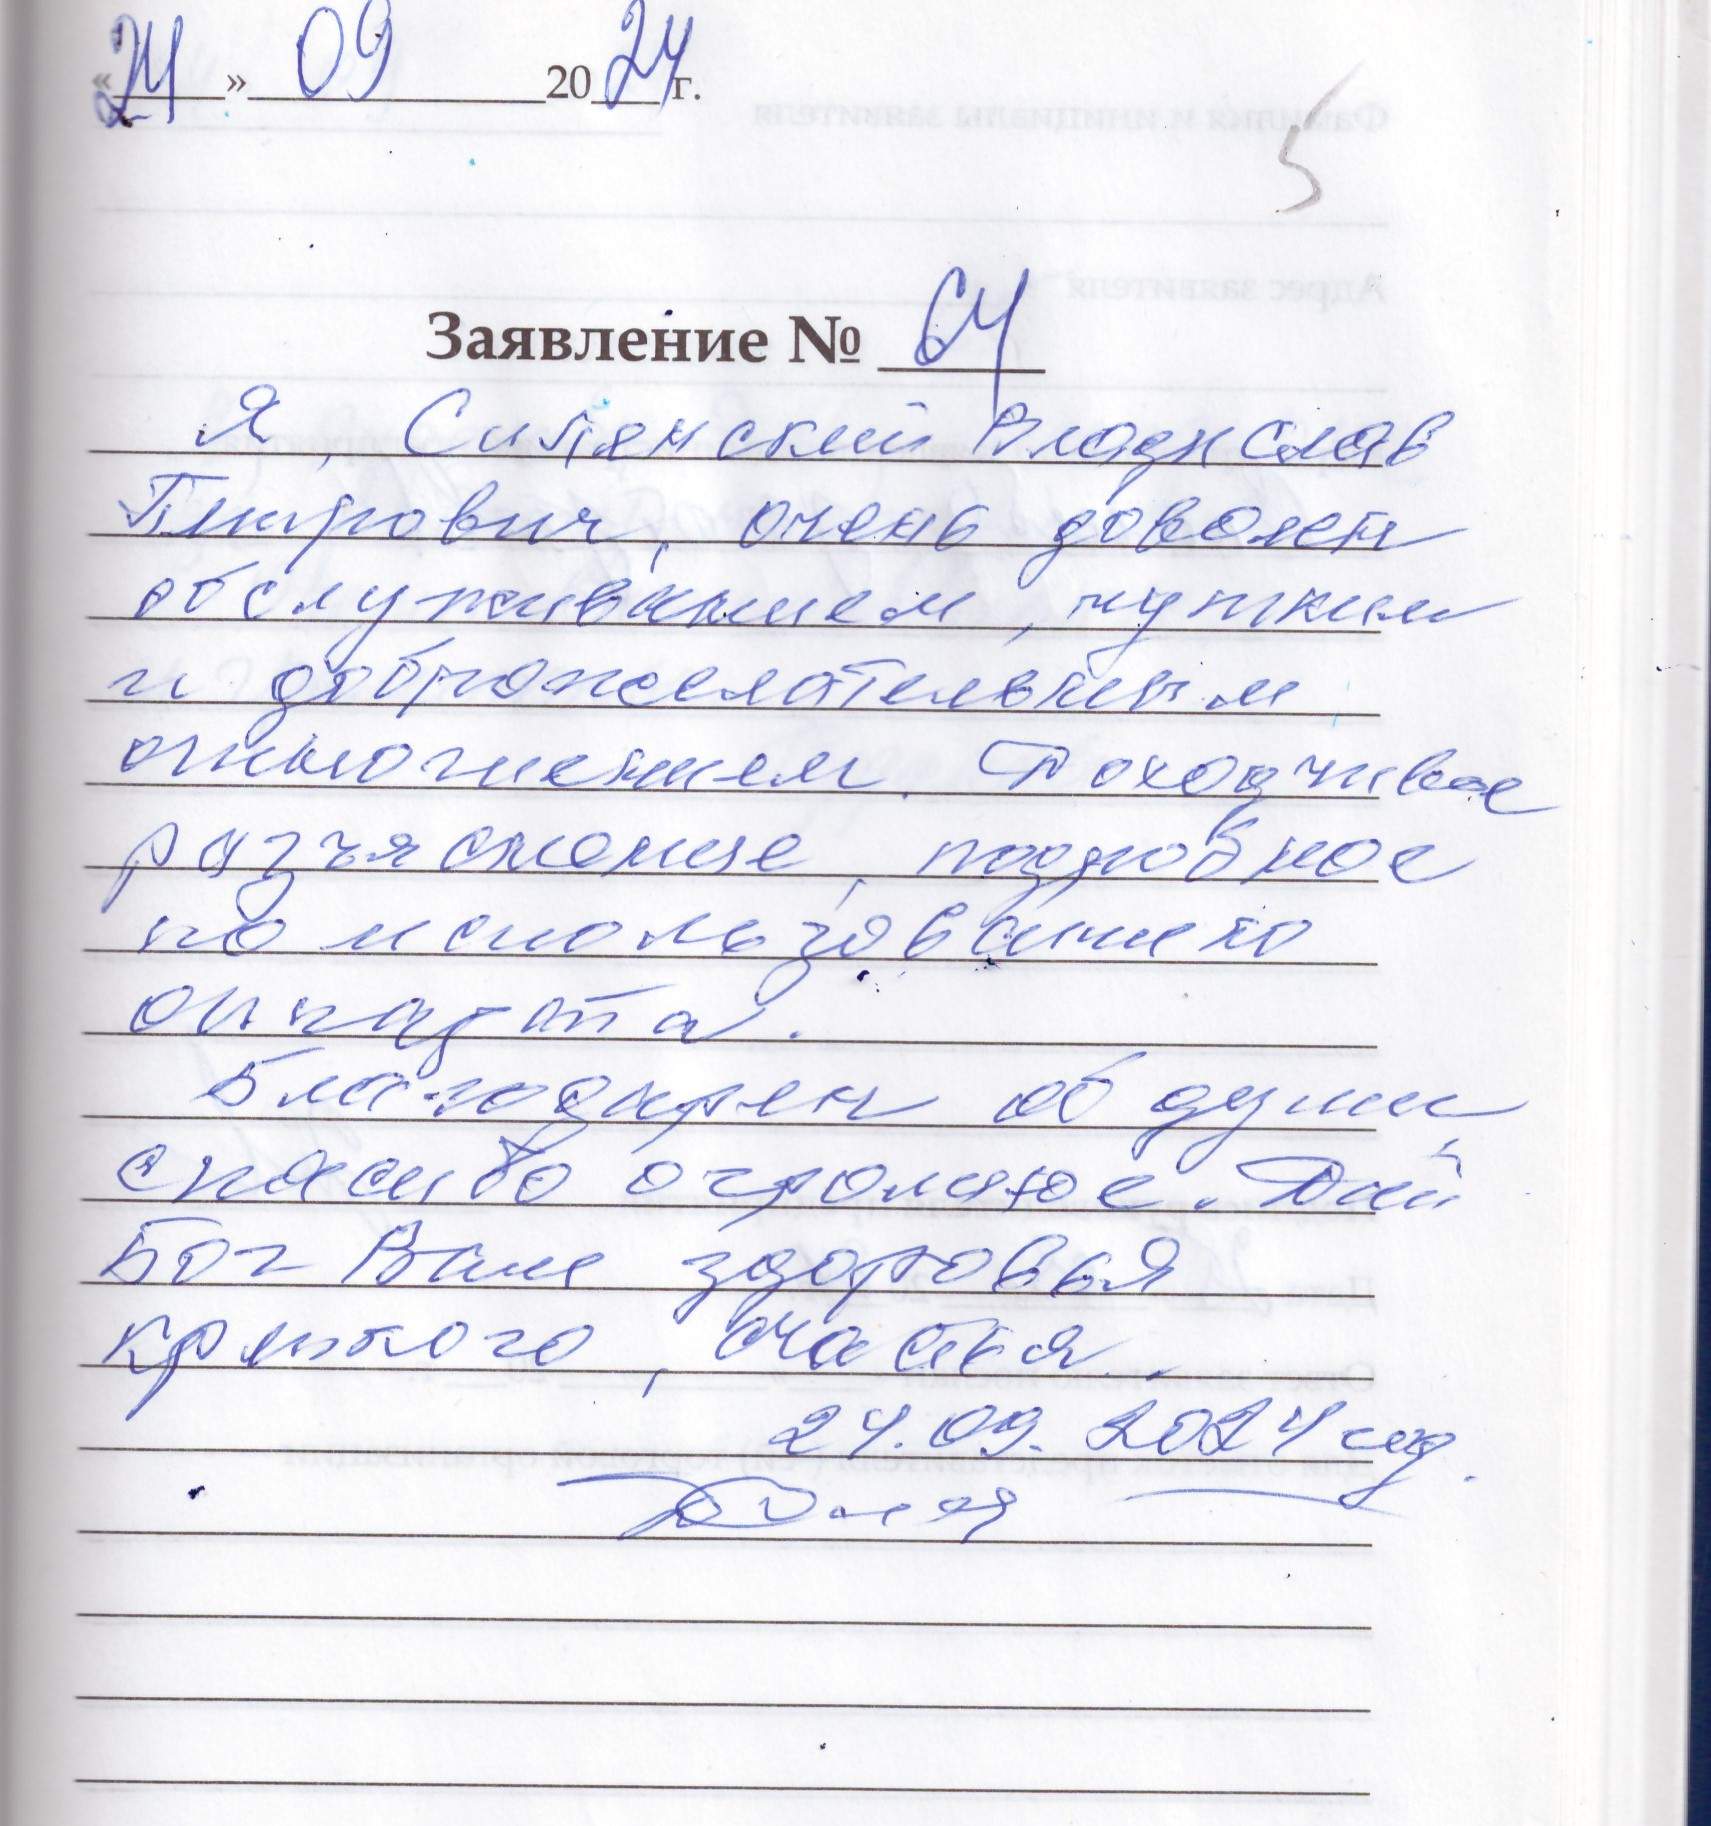 «24» 09 2024 г.
5
Заявление № 64
Я, Владислав
Петрович, очень доволен
обслуживанием, чутким
и доброжелательным
отношением. Доходчивое
разъяснение, подробное
по использованию
аппарата.
Благодарен от души
спасибо огромное. Дай
Бог Вам здоровья
крепкого, счастья.
24.09.2024 год.